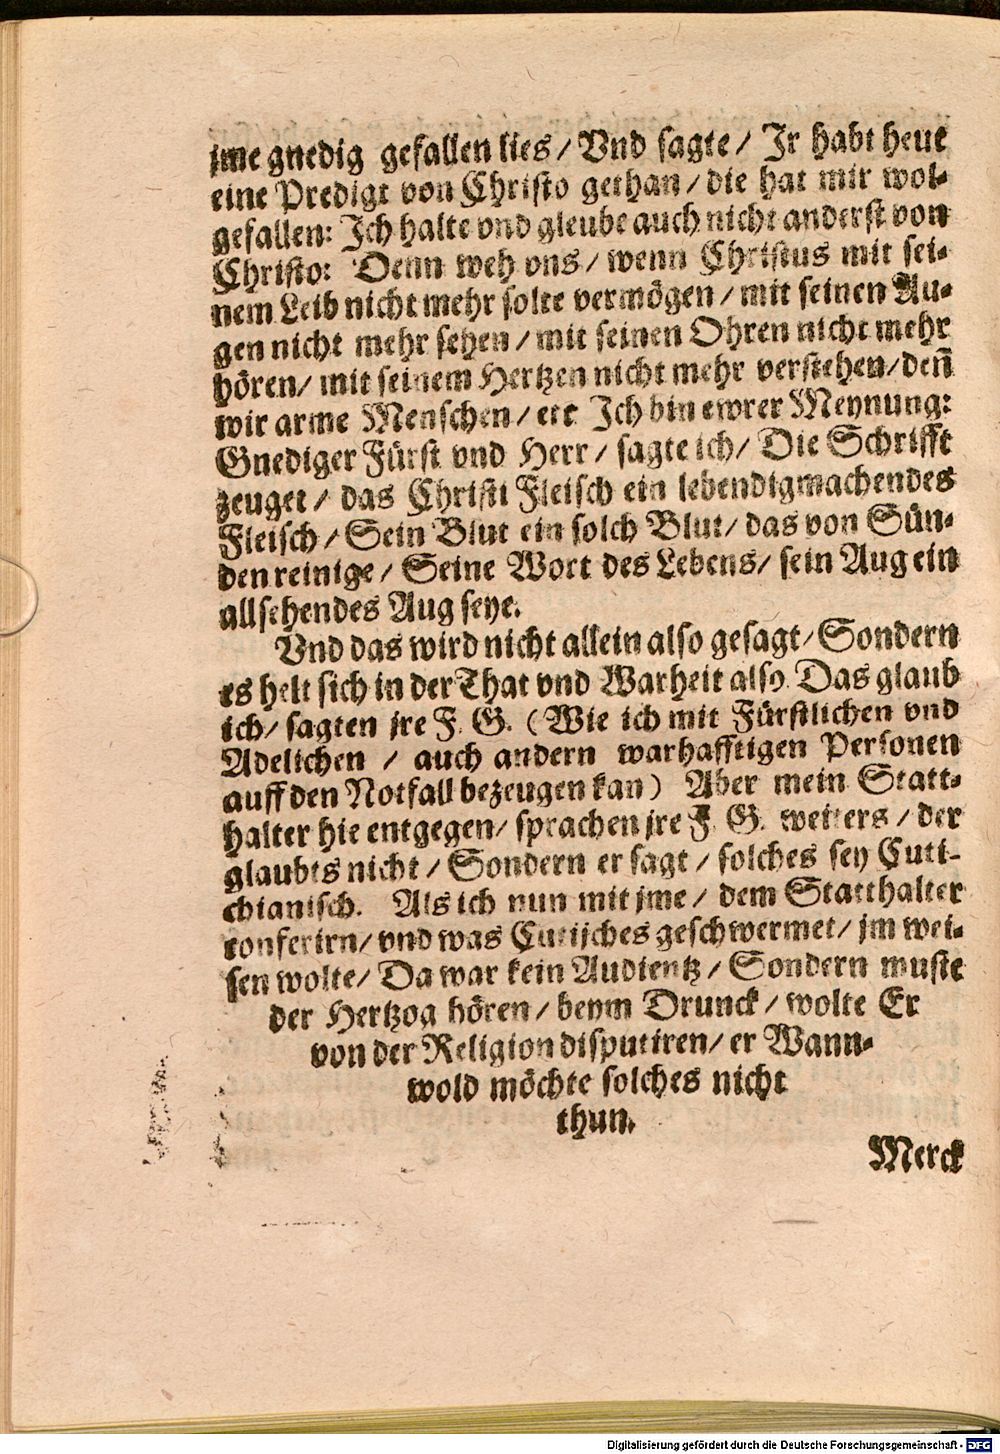 jme gnedig gefallen lies / Vnd sagte / Jr habt heut
eine Predigt von Christo gethan / die hat mir wol-
gefallen: Jch halte vnd gleube auch nicht anderst von
Christo: Denn weh vns / wenn Christus mit sei-
nem Leib nicht mehr solte vermögen / mit seinen Au-
gen nicht mehr sehen / mit seinen Ohren nicht mehr
hören / mit seinem Hertzen nicht mehr verstehen / deñ
wir arme Menschen / etc Jch bin ewrer Meynung:
Gnediger Fürst vnd Herr / sagte ich / Die Schrifft
zeuget / das Christi Fleisch ein lebendigmachendes
Fleisch / Sein Blut ein solch Blut / das von Sün-
den reinige / Seine Wort des Lebens / sein Aug ein
allsehendes Aug seye.
Vnd das wird nicht allein also gesagt / Sondern
es helt sich in der That vnd Warheit also. Das glaub
ich / sagten jre F. G. (Wie ich mit Fürstlichen vnd
Adelichen / auch andern warhafftigen Personen
auff den Notfall bezeugen kan) Aber mein Statt-
halter hie entgegen / sprachen jre F. G. weiters / der
glaubts nicht / Sondern er sagt / solches sey Euti-
chianisch. Als ich nun mit jme / dem Statthalter
conferirn / vnd was Eutijches geschwermet / jm wei-
sen wolte / Da war kein Audientz / Sondern muste
der Hertzog hören / beym Drunck / wolte Er
von der Religion disputiren / er Wann-
wold möchte solches nicht
thun.
Merck
Digitalisierung gefördert durch die Deutsche Forschungsgemeinschaft - DFG